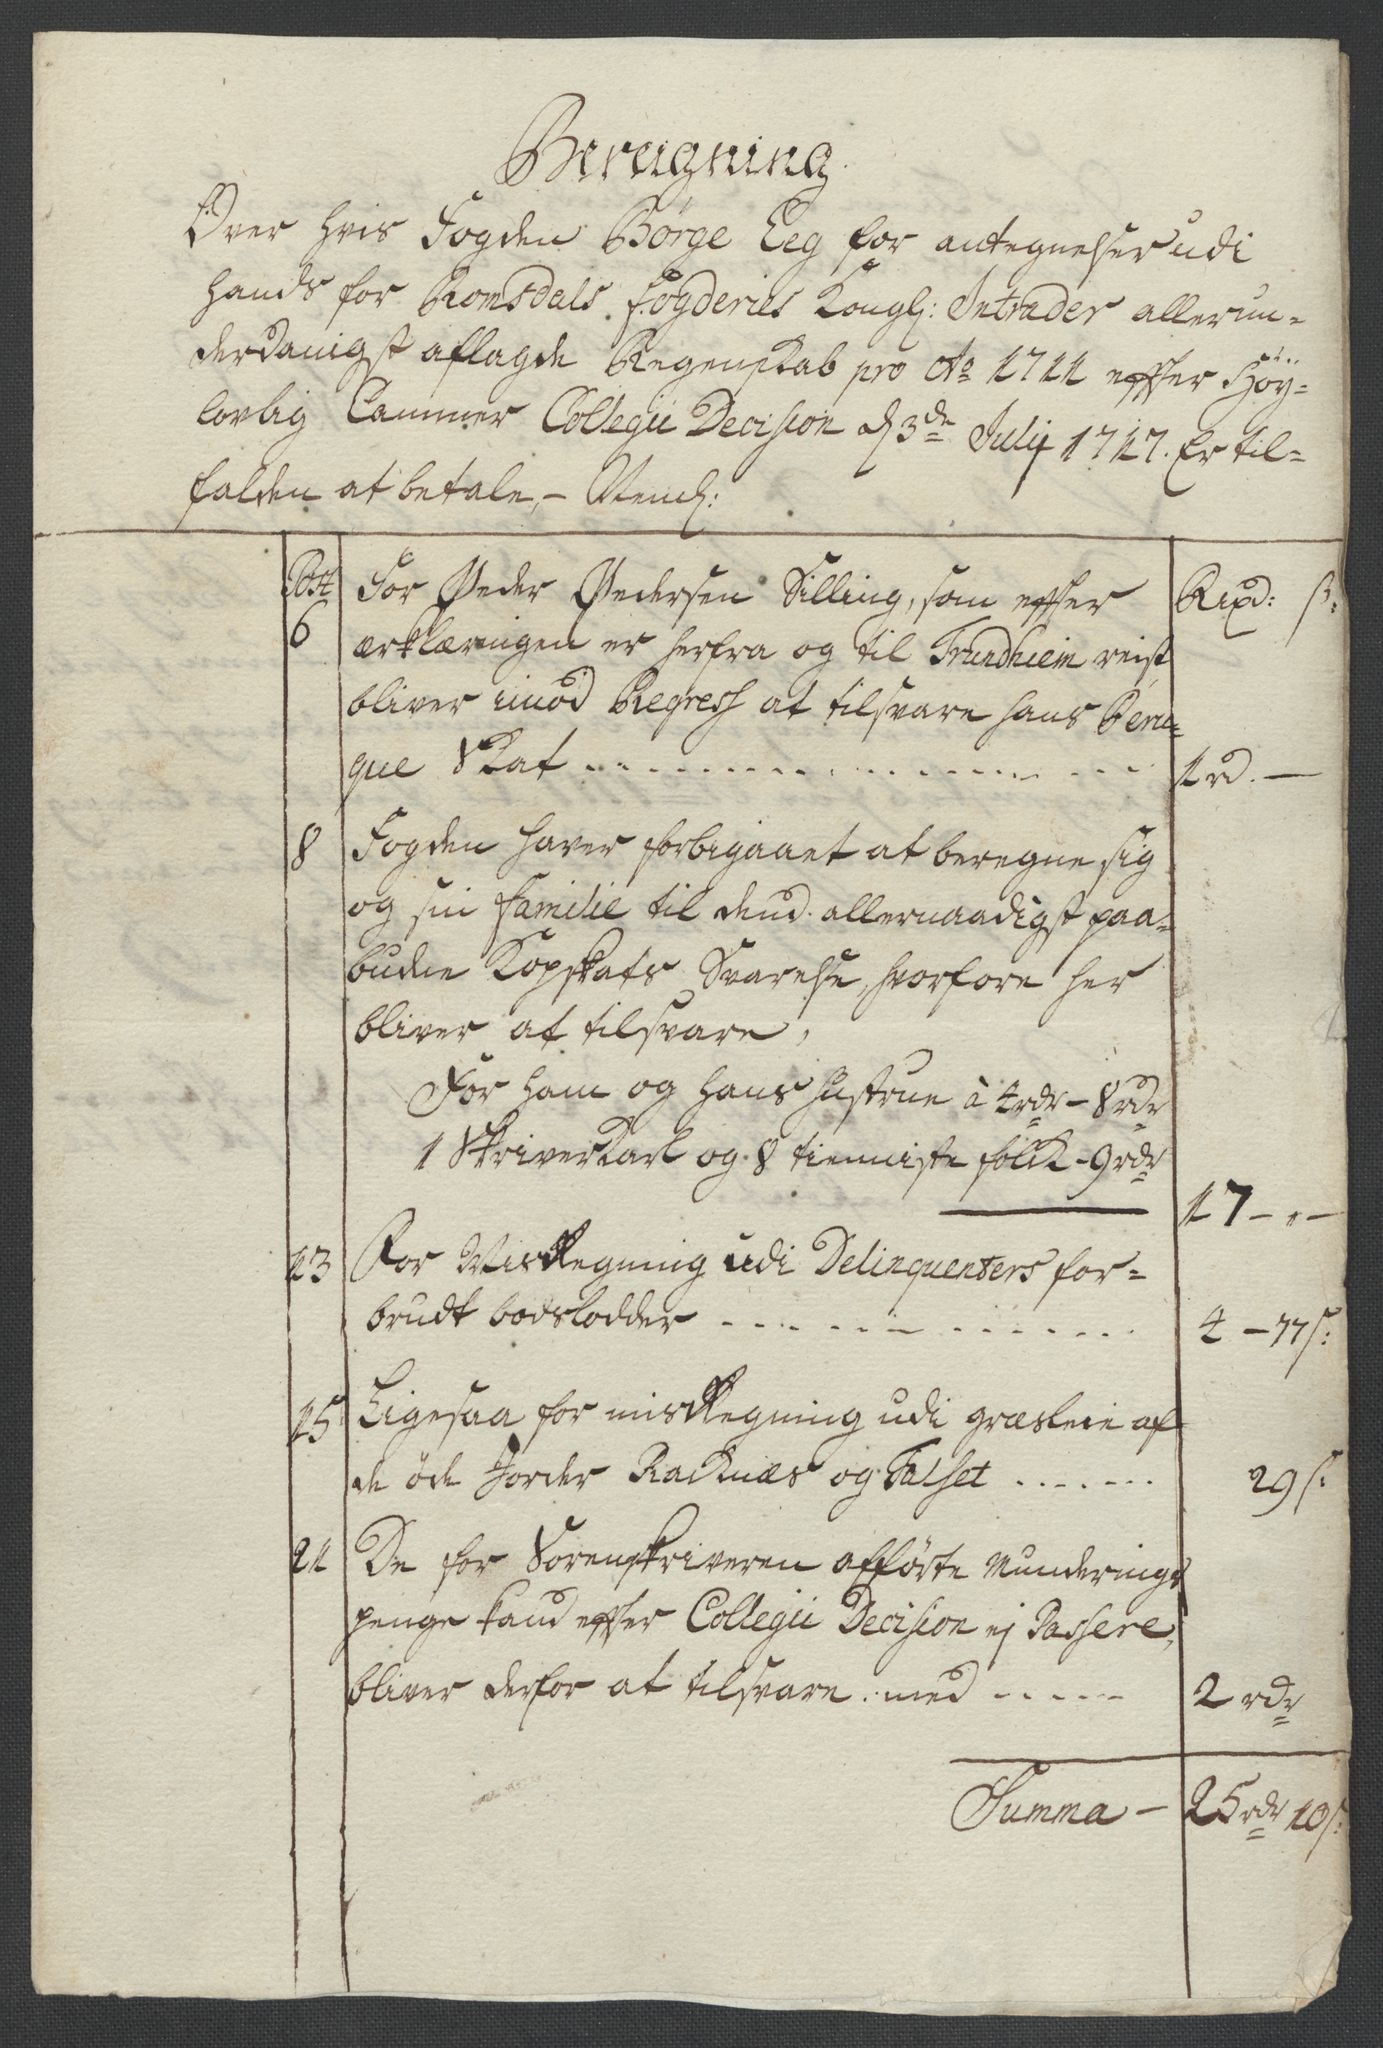 Bereigning
Over hvis Fogden Børge Eeg for antegnelser udi
hands for Romsdals Fogderies Kongl: Intrader allerun-
derdanigst aflagde Regenskab pro Ao 1711 effter Höÿ-
lovlig Cammer Collegii Decision d 3de Julij 1717. Er til-
falden at betale, - Neml:
Post For Peder Pedersen Silling, som effter Rixd: s:
6 erklæringen er herfra og til Trundhiem reist
bliver imod Regress at tilsvare hans Peru-
que Skat 1 rd. —
8 Fogden haver forbigaaet at beregne sig
og sin Familie til dend allernaadigst paa-
budne Kopskats Svarelse, hvorfore her
bliver at tilsvare,
For ham og hans Hustrue à 4 rdr - 8 rdr
1 Skriverkarl og 8 tienniste folck - 9 rdr
17 - " -
13 For Misregning udi Delinquenters for-
brudt boedslodder 4 - 77 s:
15 Ligesaa for misregning udi græsleie af
de øde Jorder Racknæs og Talset 29 s:
21 De for Sorenskriveren afførte Munderings
penge kand effter Collegii Decision ej Passere,
bliver derfor at tilsvare. med 2 rdr
Summa - 25 rdr 10 s: